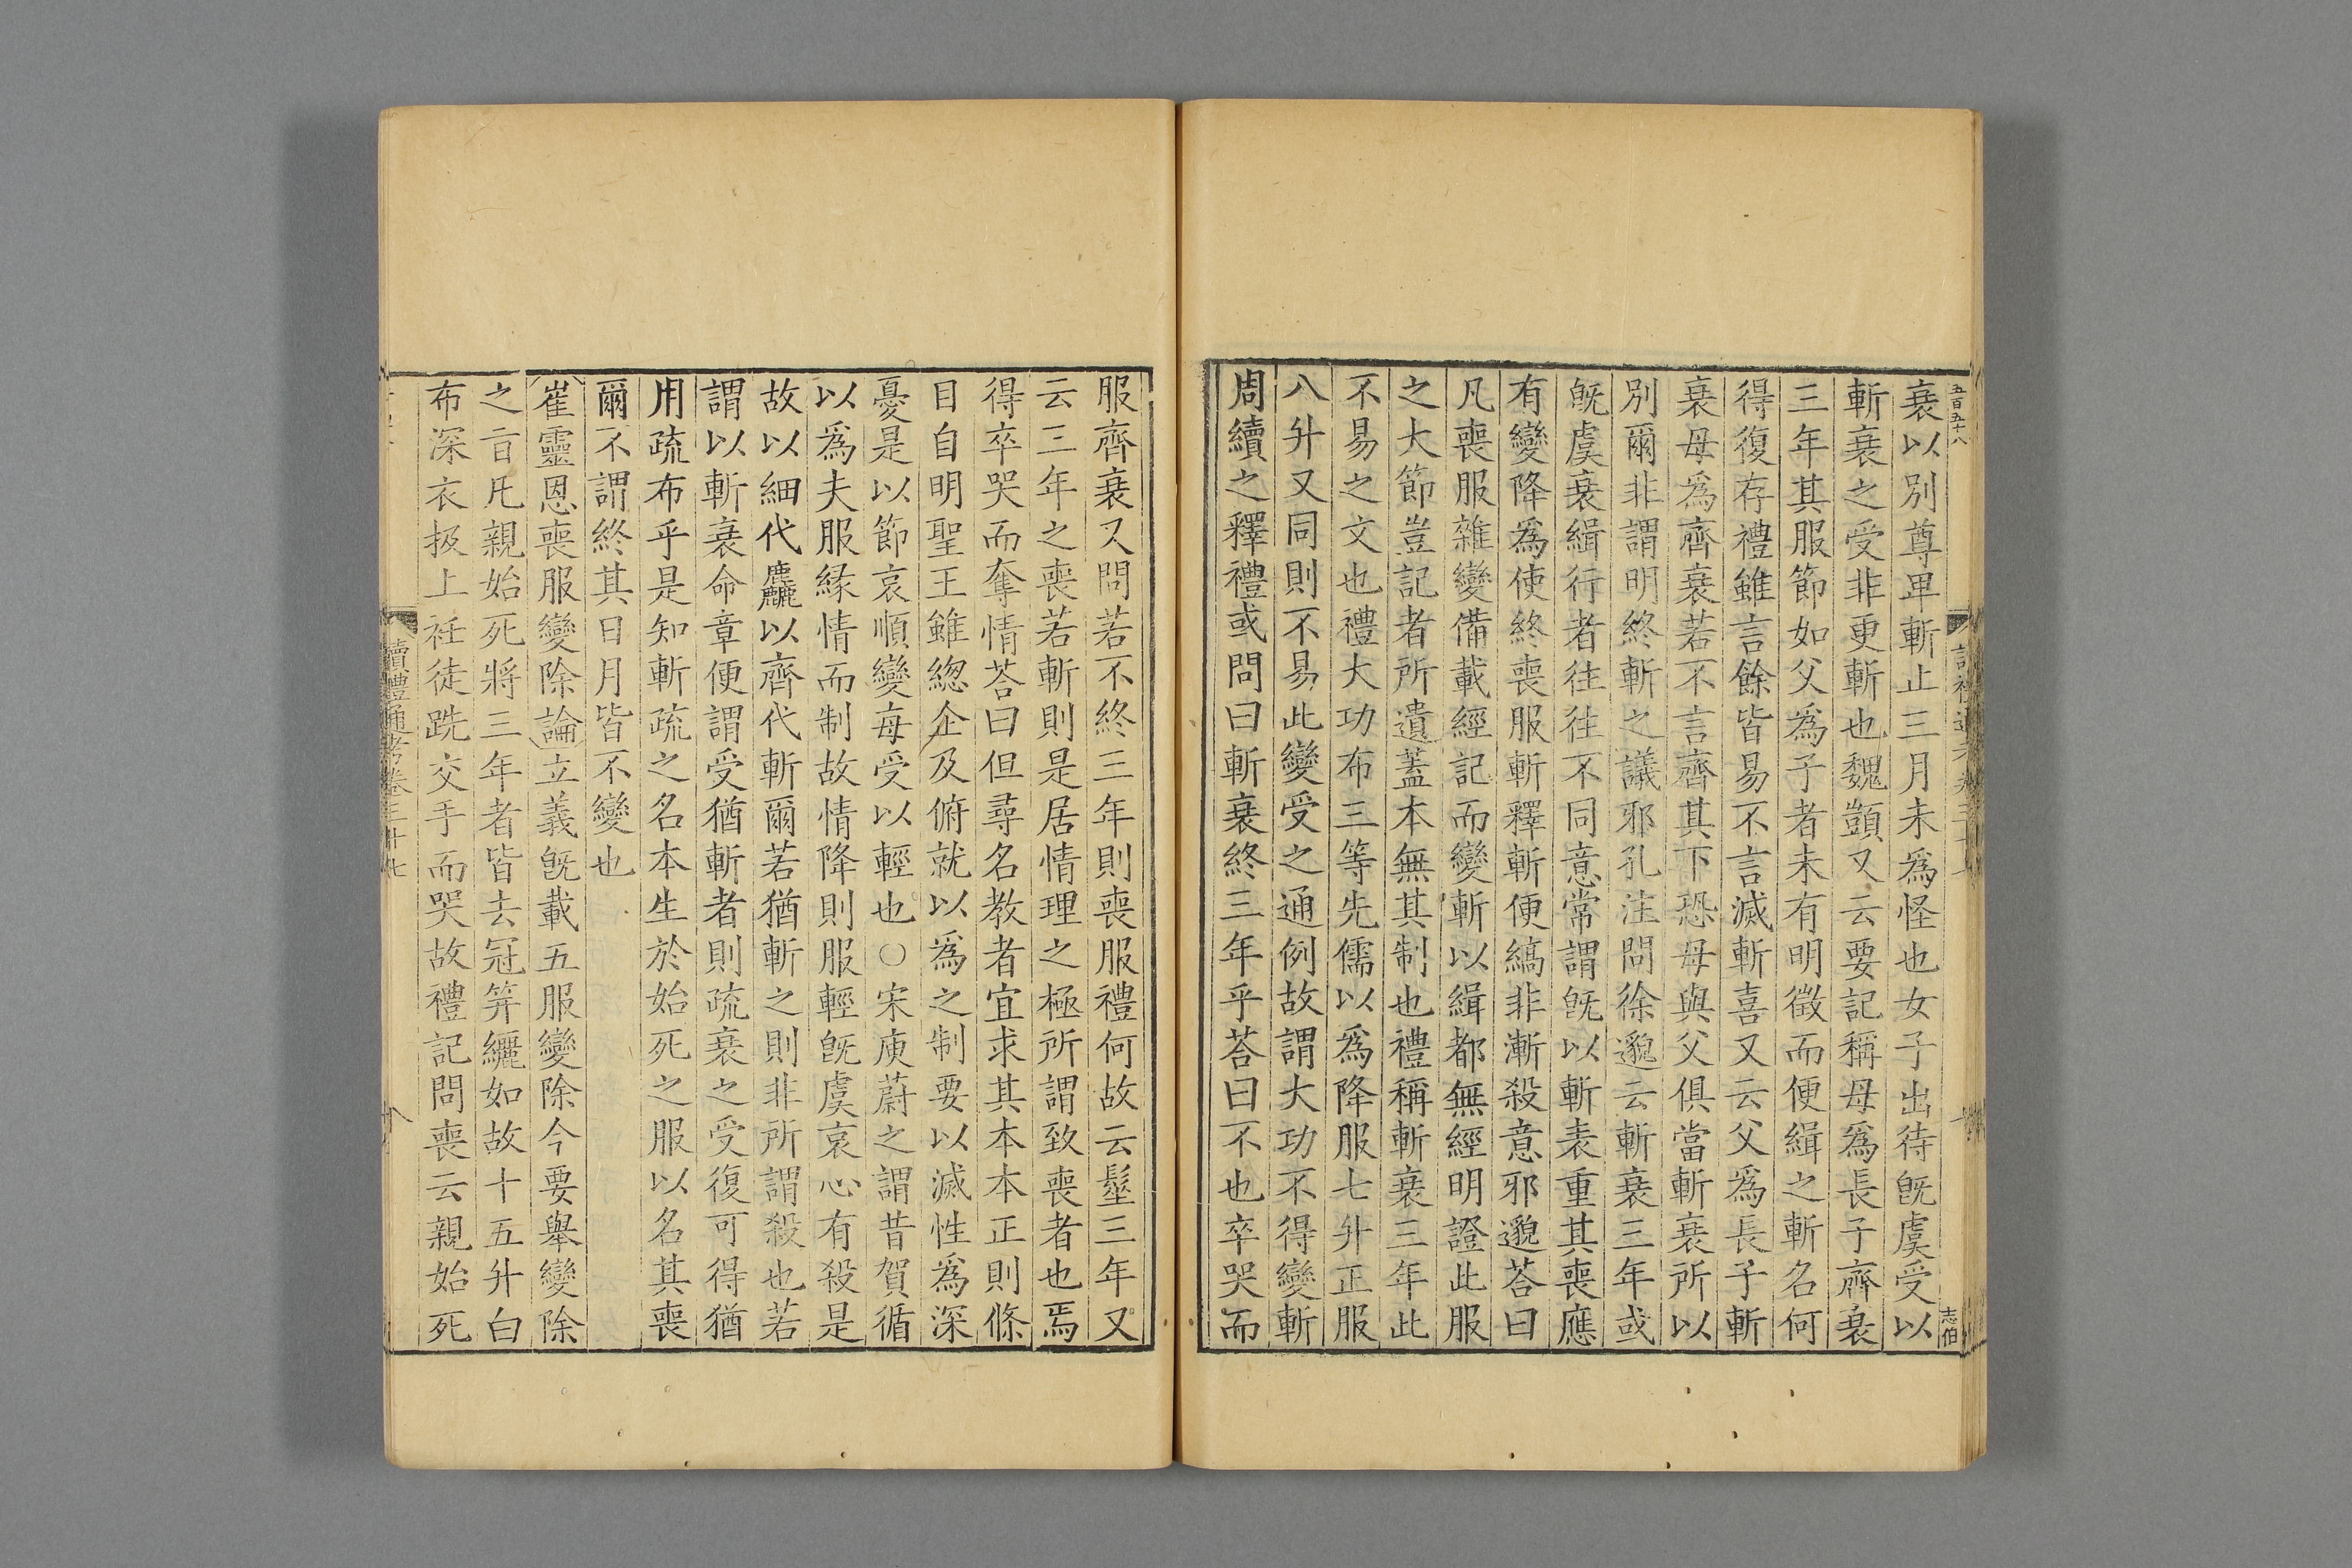 五百五十八
衰以別尊卑斬止三月未爲怪也女子出待旣虞受以
斬衰之受非更斬也魏顗又云要記稱母爲長子齊衰
三年其服節如父爲子者未有明徵而便緝之斬名何
得復存禮雖言餘皆易不言滅斬喜又云父爲長子斬
衰母爲齊衰若不言齊其下恐母與父俱當斬衰所以
別爾非謂明終斬之議邪孔注問徐邈云斬衰三年或
旣虞衰緝行者往往不同意常謂旣以斬表重其喪應
有變降爲使終喪服斬釋斬便縞非漸殺意邪邈荅曰
凡喪服雜變備載經記而變斬以緝都無經明證此服
之大節豈記者所遺蓋本無其制也禮稱斬衰三年此
不易之文也禮大功布三等先儒以爲降服七升正服
八升又同則不易此變受之通例故謂大功不得變斬
周續之釋禮或問曰斬衰終三年乎荅曰不也卒哭而
志伯
服齊衰又問若不終三年則喪服禮何故云髽三年又
云三年之喪若斬則是居情理之極所謂致喪者也焉
得卒哭而奪情荅曰但尋名教者宜求其本本正則條
目自明聖王雖緫企及俯就以爲之制要以滅性爲深
憂是以節哀順變每受以輕也○宋庾蔚之謂昔賀循
以爲夫服緣情而制故情降則服輕旣虞哀心有殺是
故以細代麤以齊代斬爾若猶斬之則非所謂殺也若
謂以斬衰命章便謂受猶斬者則疏衰之受復可得猶
用疏布乎是知斬疏之名本生於始死之服以名其喪
爾不謂終其日月皆不變也
崔靈恩喪服變除論立義旣載五服變除今要舉變除
之㫖凡親始死將三年者皆去冠笄纚如故十五升白
布深衣扱上衽徒跣交手而哭故禮記問喪云親始死
讀禮通考卷三十七